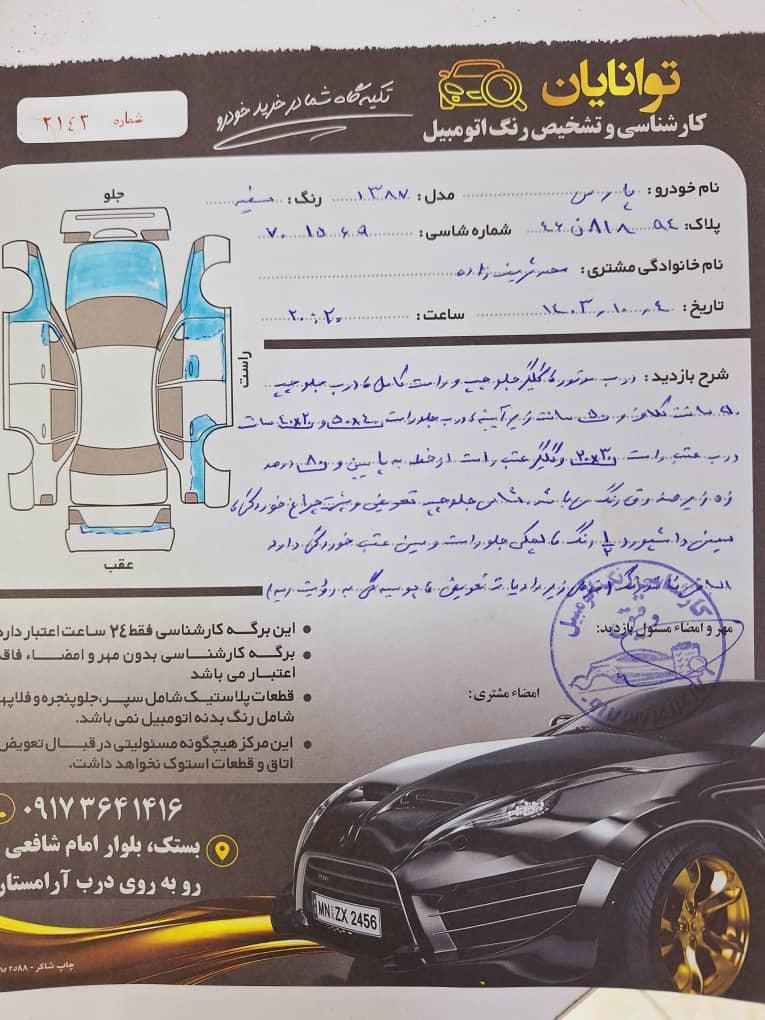 توانایان
کارشناسی و تشخیص رنگ اتومبیل
تکیه گاه شما در خرید خودرو
شماره ۲۱۴۳
نام خودرو: پارس مدل: ۱۳۸۷ رنگ: سفید
پلاک: ۹۴ ۸۱۸ن۴۶ شماره شاسی: ۷۰۱۵۶۹
نام خانوادگی مشتری: محمد شریف زاده
تاریخ: ۱۴۰۳٫۱۰٫۴ ساعت: ۲۰:۲۰
جلو
راست
عقب
شرح بازدید: درب موتور، گلگیر جلو چپ و راست کامل، درب جلو چپ
۹۰ سانت و ۵۰ سانت زیر آینه، درب جلو راست ۵۰x۴۰ و ۴۰x۲۰ سانت
درب عقب راست ۲۰x۳۰ و گلگیر عقب راست از خط به پایین و ۸۰ درصد
زه زیر صندوق رنگ می باشد. شاسی جلو چپ تعویض و پشت چراغ خوردگی،
سینی داشبورد با رنگ، جلو راست و سینی عقب خوردگی دارد
مهر و امضاء مسئول بازدید:
امضاء مشتری:
این برگه کارشناسی فقط ۲۴ ساعت اعتبار دارد
برگه کارشناسی بدون مهر و امضاء فاقد
اعتبار می باشد
قطعات پلاستیک شامل سپر، جلوپنجره و فلاپها
شامل رنگ بدنه اتومبیل نمی باشد.
این مرکز هیچگونه مسئولیتی در قبال تعویض
اتاق و قطعات استوک نخواهد داشت.
۰۹۱۷ ۳۶۴۱۴۱۶
بستک، بلوار امام شافعی
رو به روی درب آرامستان
MN ZX 2456
چاپ شاکر - ۲۵۸۸